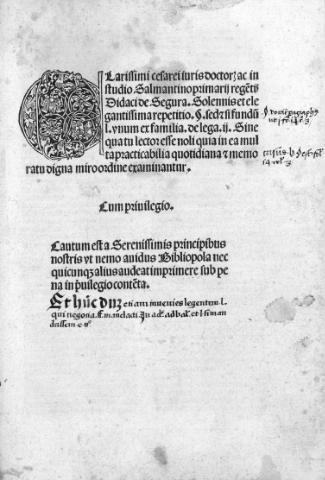 Clarissimi cesarei iuris doctorꝫ ac in
studio Salmantino primarij regētis
Didaci de Segura. Solennis et ele
gantissima repetitio. §. sed si fundū
l. vnum ex familia. de lega. ij. Sine
qua tu lector esse noli quia in ea mul
ta practicabilia quotidiana ⁊ memo
ratu digna miro ordine examinantur.
Cum priuilegio.
Cautum est a Serenissimis principibus
nostris vt nemo auidus Bibliopola nec
quicunqꝫ alius audeat imprimere sub pe
na in p̄uilegio contēta.
etiam inuenies legentem l.
qui negotia. ff. mandati.